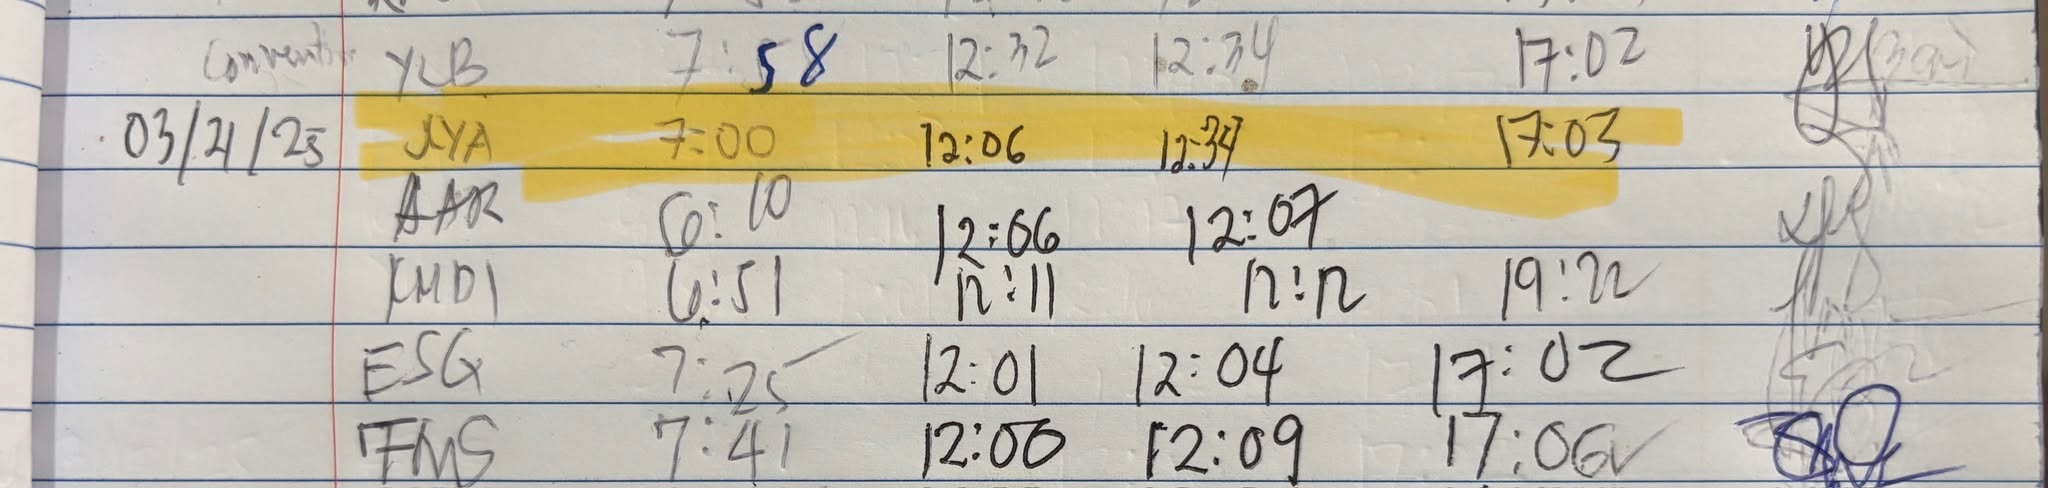 YLB 7:58 12:32 12:34 17:02
03/21/25 JYA 7:00 12:06 12:34 17:03
AAR 6:10 12:06 12:07
KMDI 6:51 12:11 12:12 19:22
ESG 7:25 12:01 12:04 17:02
FMS 7:41 12:00 12:09 17:06